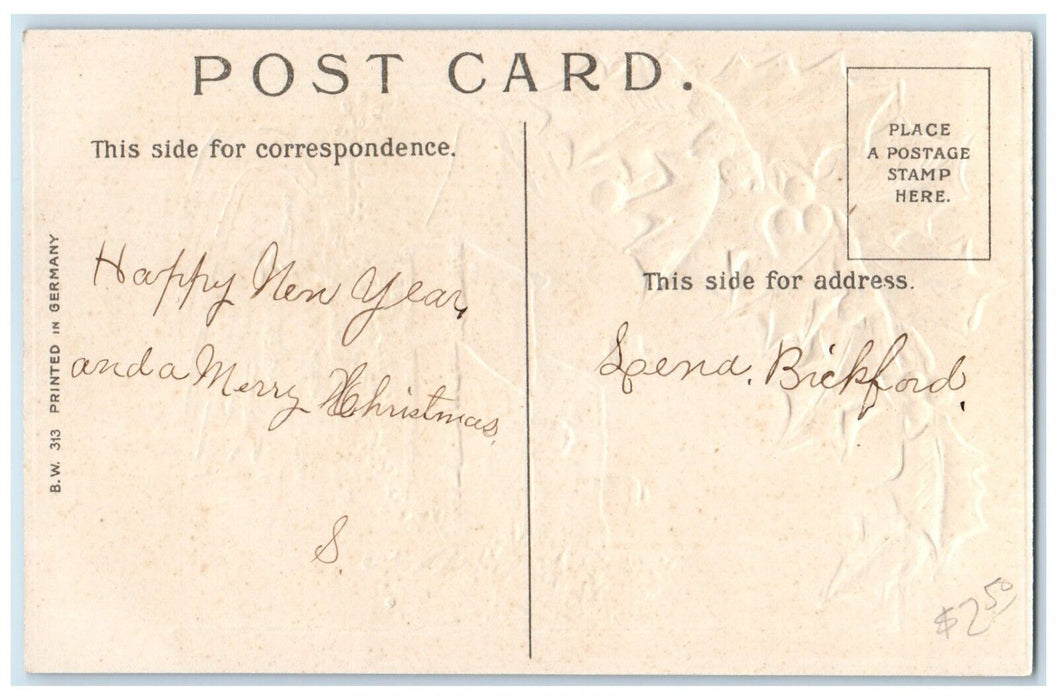 POST CARD.
This side for correspondence.
PLACE
A POSTAGE
STAMP
HERE.
This side for address.
B.W. 313 PRINTED IN GERMANY
Happy New Year,
and a Merry Christmas,
S.
Bickford.
$2.50